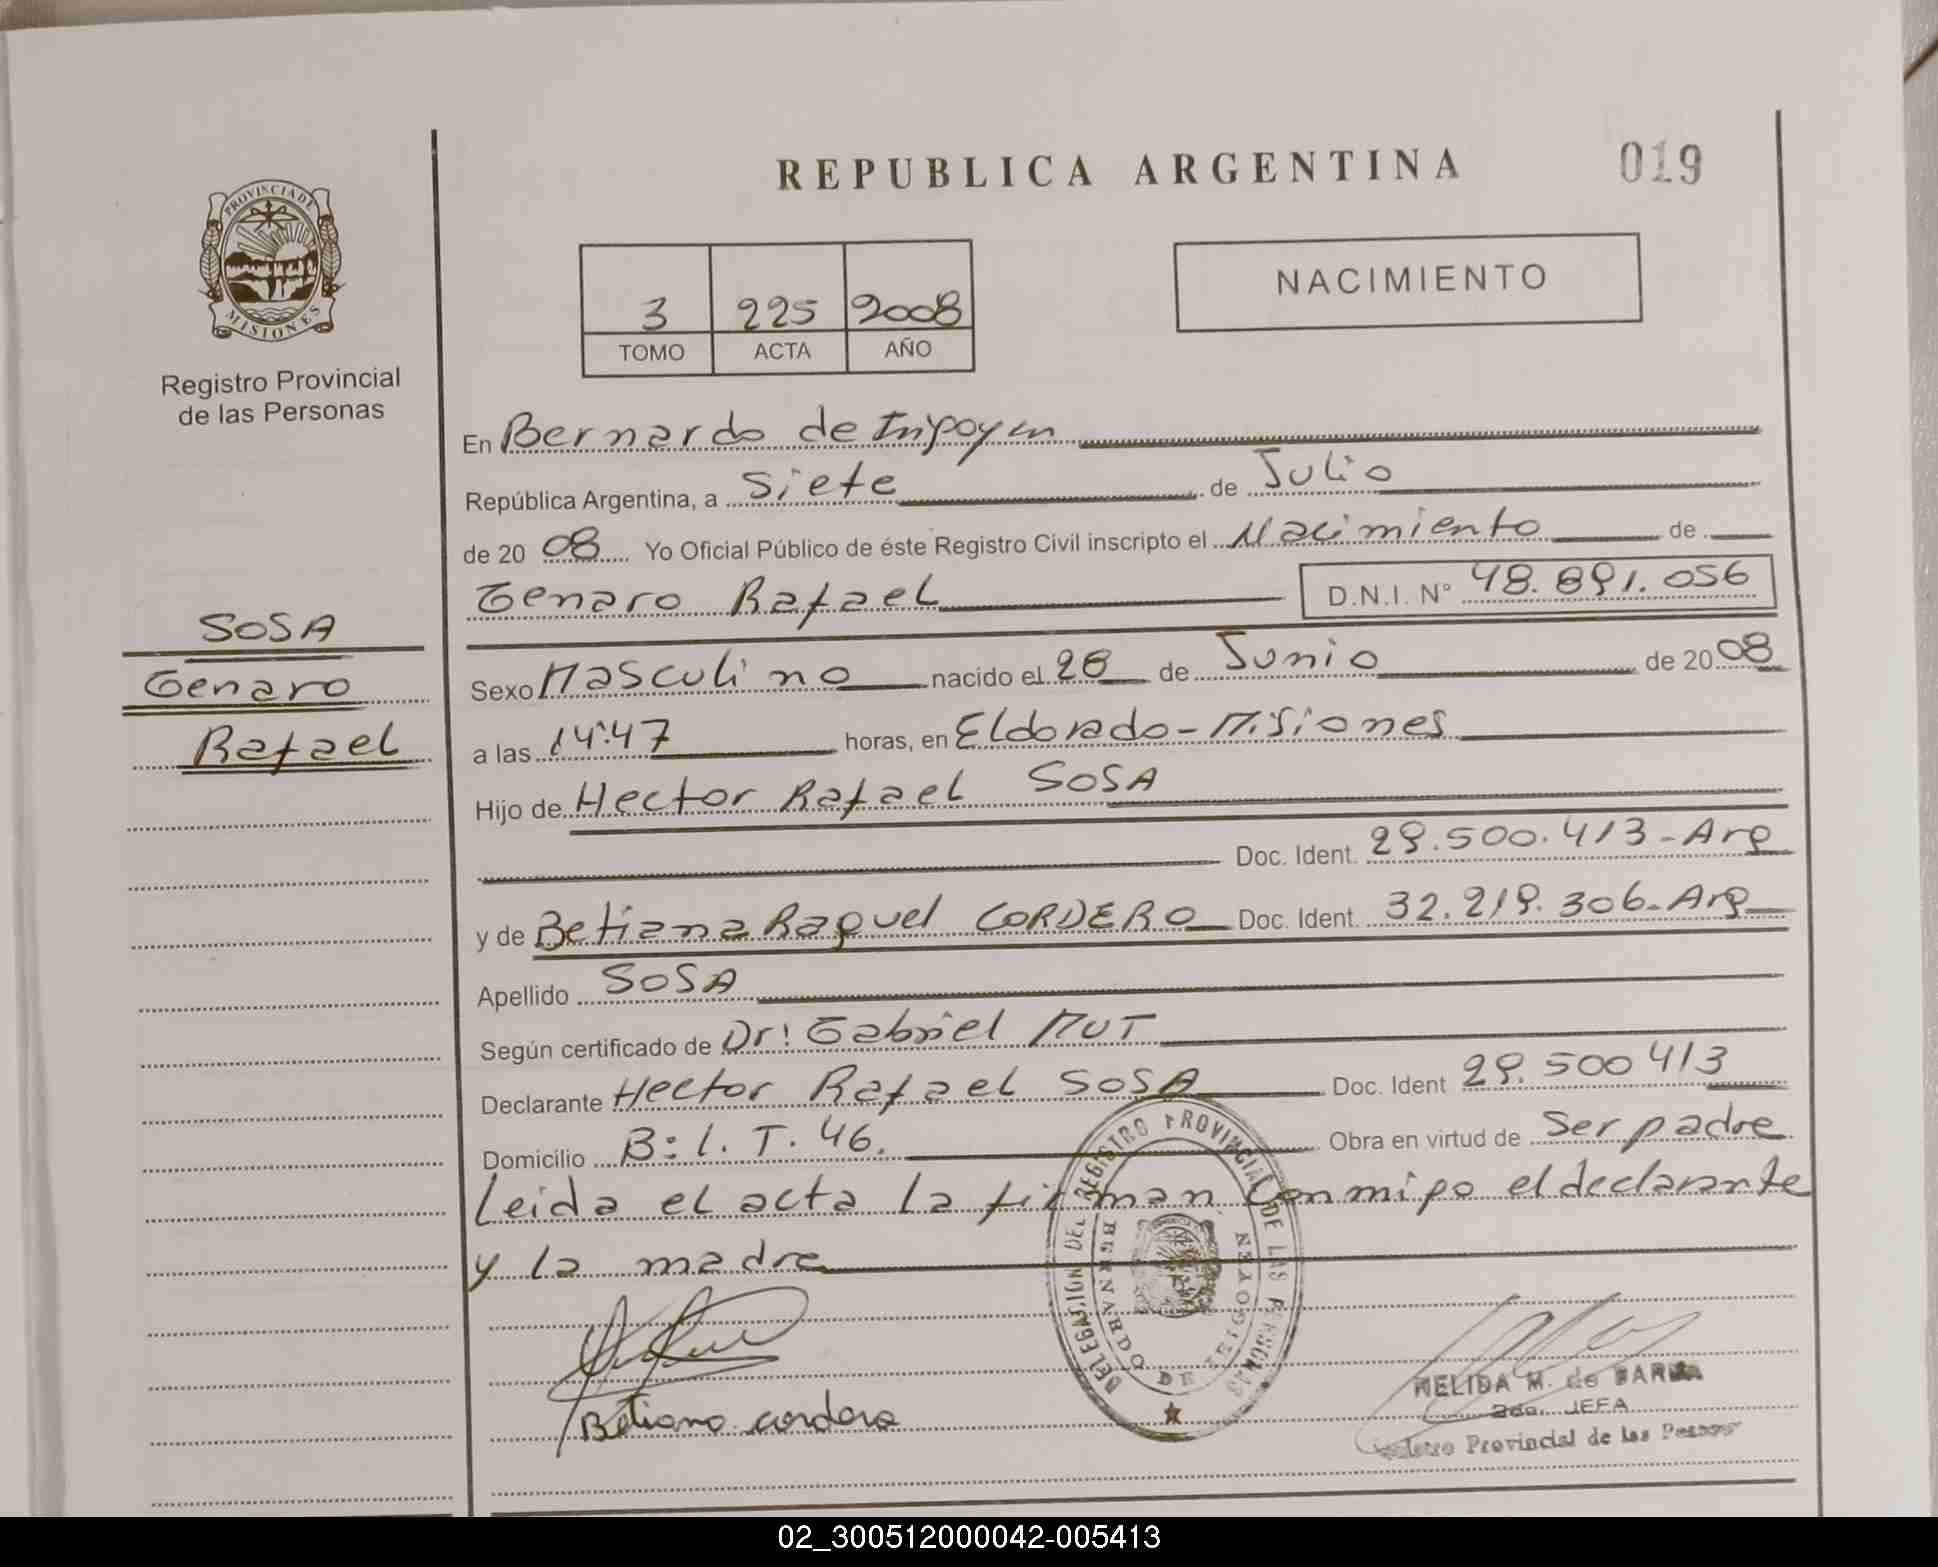 REPUBLICA ARGENTINA
019
PROVINCIA DE
MISIONES
Registro Provincial
de las Personas
3 225 2008
TOMO ACTA AÑO
NACIMIENTO
En Bernardo de Irigoyen
República Argentina, a Siete de Julio
de 20 08 Yo Oficial Público de éste Registro Civil inscripto el Nacimiento de
Genaro Rafael D.N.I. Nº 48.891.056
SOSA
Genaro
Rafael
Sexo Masculino nacido el 28 de Junio de 20 08
a las 14:47 horas, en Eldorado - Misiones
Hijo de Hector Rafael SOSA
Doc. Ident. 29.500.413 - Arg
y de Betiana Raquel CORDERO Doc. Ident. 32.219.306 - Arg
Apellido SOSA
Según certificado de Dr: Gabriel MUT
Declarante Hector Rafael SOSA Doc. Ident 29.500 413
Domicilio B: l. T. 46. Obra en virtud de Ser padre
Leida el acta la firman conmigo el declarante
y la madre
DELEGACION DEL REGISTRO PROVINCIAL DE LAS PERSONAS
BERNARDO DE IRIGOYEN
Betiana cordero
NELIDA M. de
2da. JEFA
Registro Provincial de las Personas
02_300512000042-005413